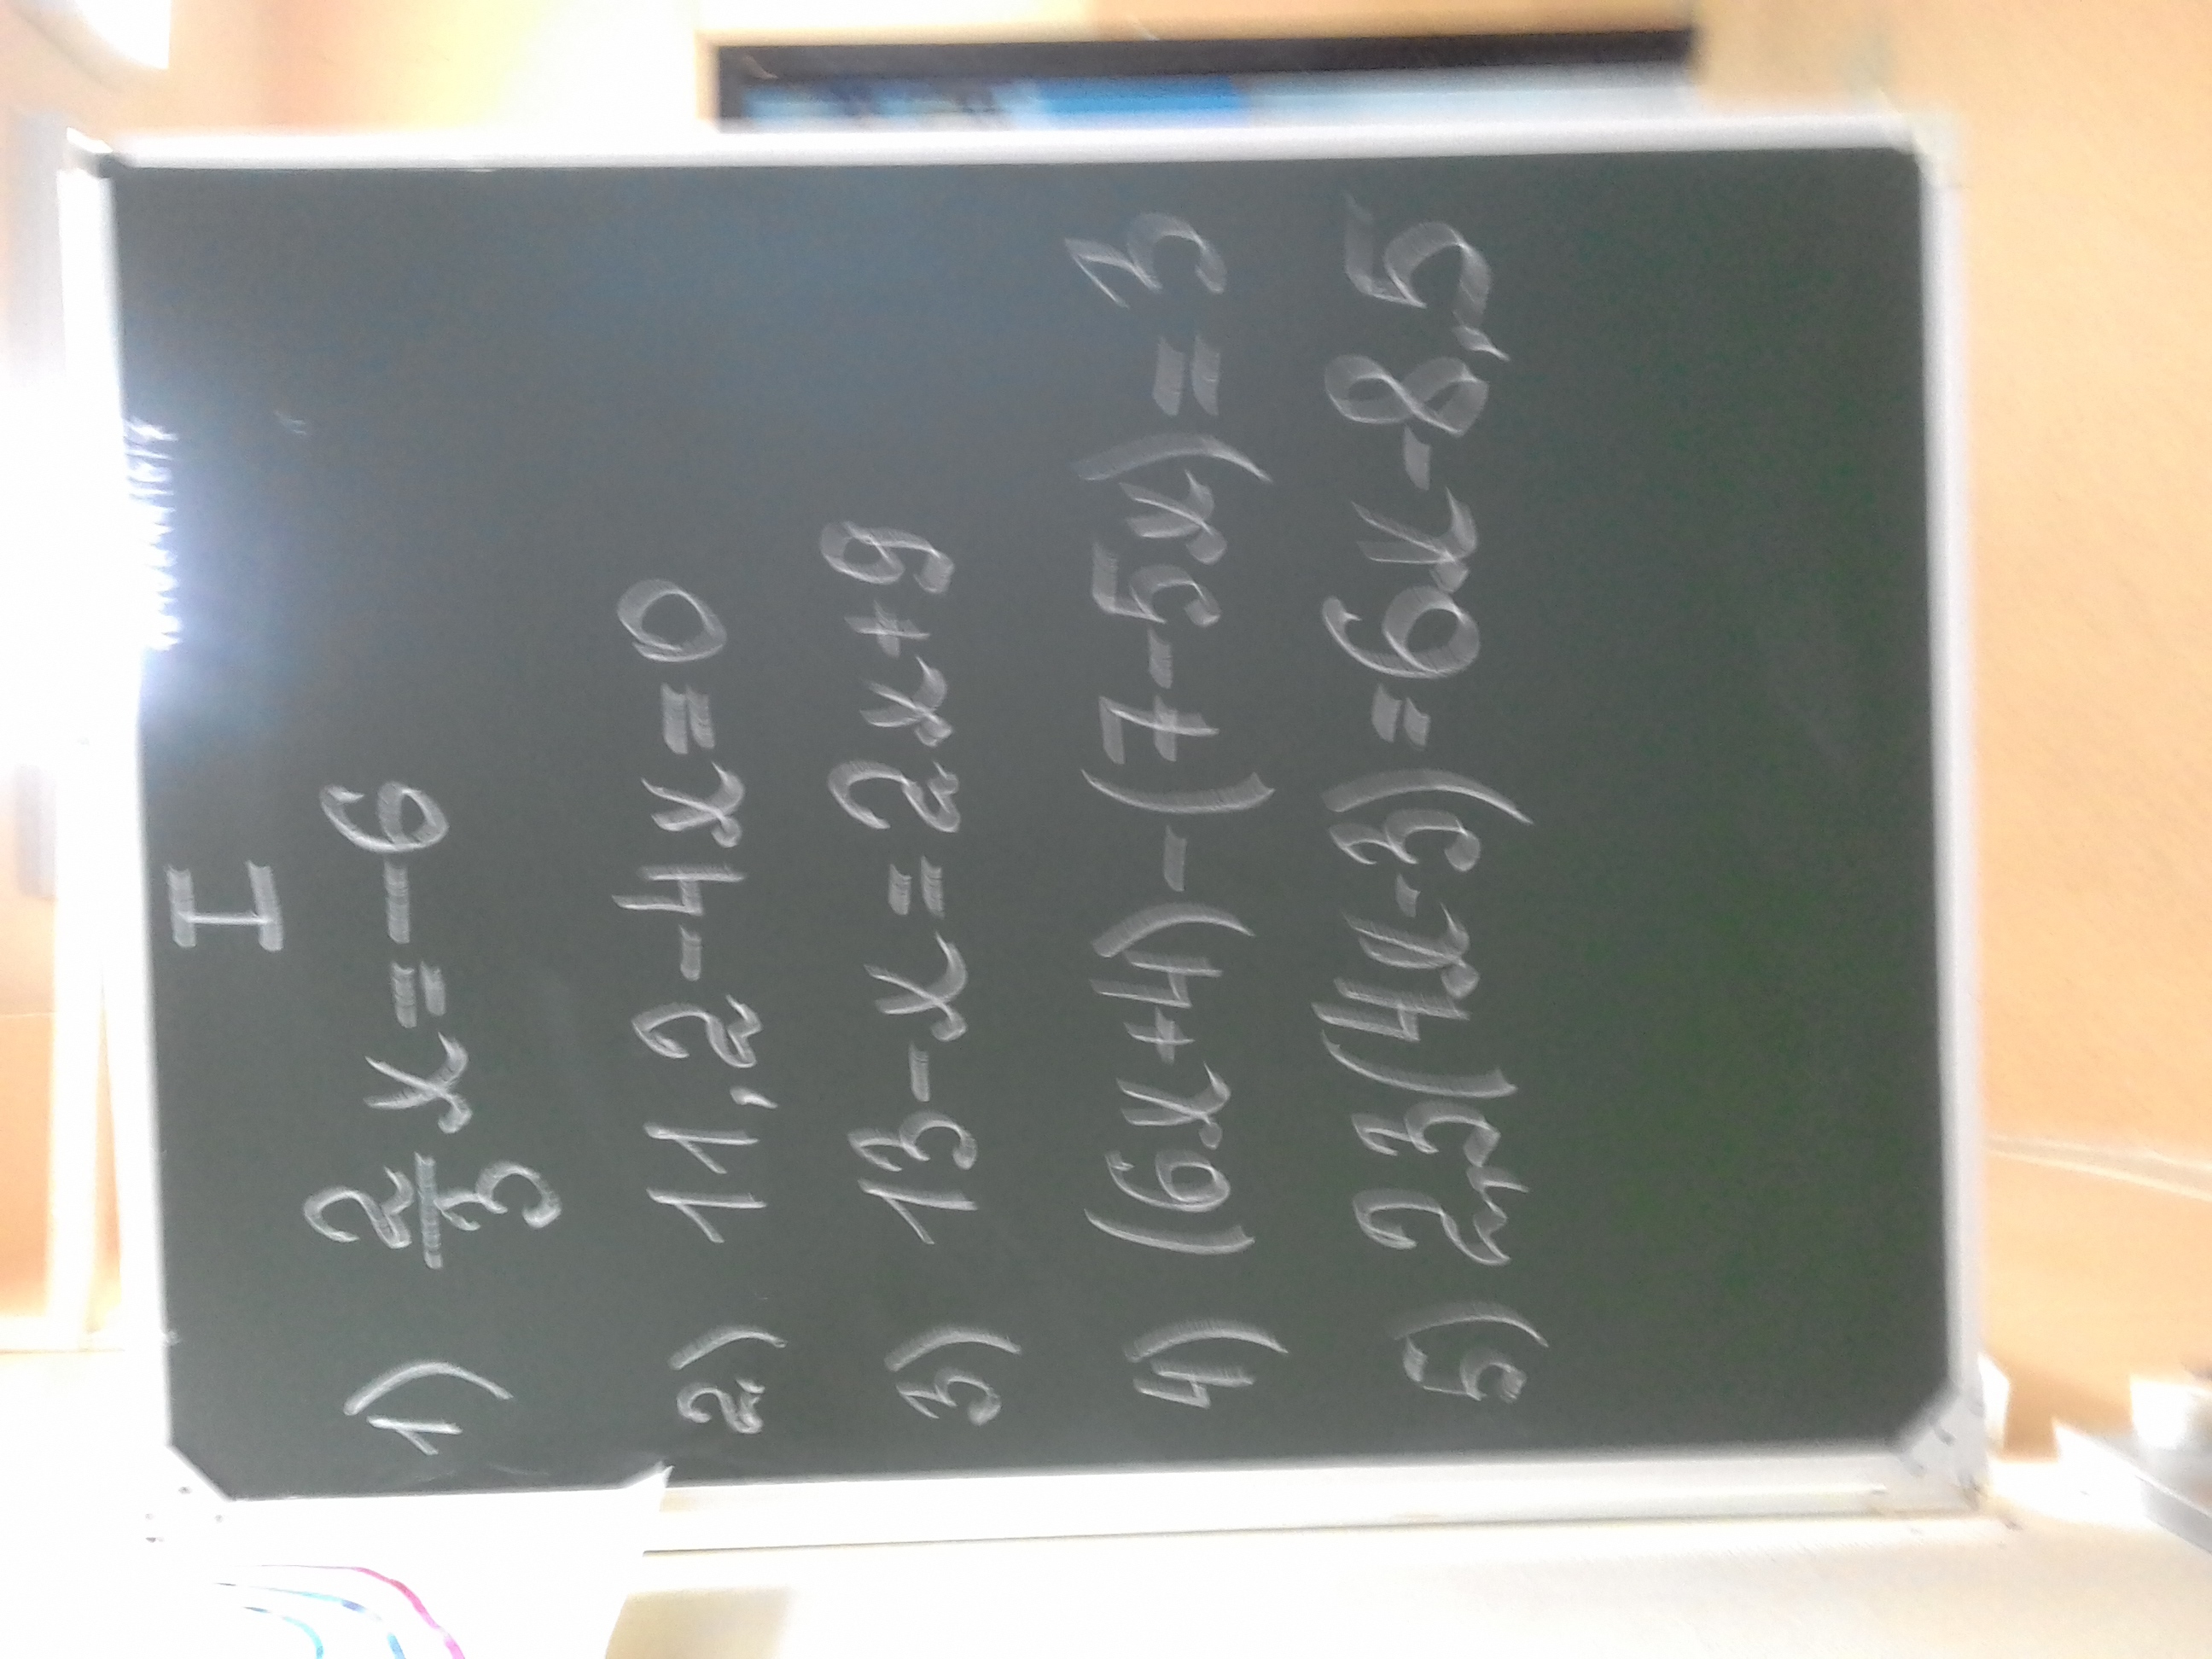 I
1) 2/3 x = -6
2) 11,2 - 4x = 0
3) 13 - x = 2x + 9
4) (6x + 4) - (7 - 5x) = 3
5) 2,3(4x - 3) = 6x - 8,5